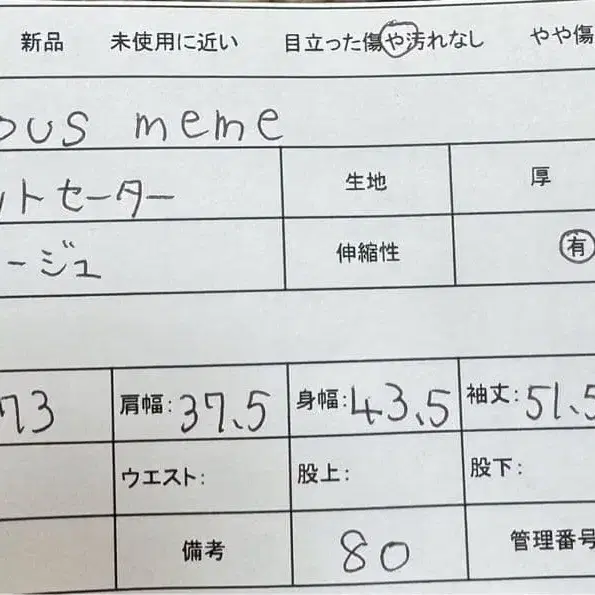 新品 未使用に近い 目立った傷や汚れなし やや傷
ous meme
ットセーター 生地 厚
ージュ 伸縮性 有
73 肩幅: 37.5 身幅: 43.5 袖丈: 51.5
ウエスト: 股上: 股下:
備考 80 管理番号